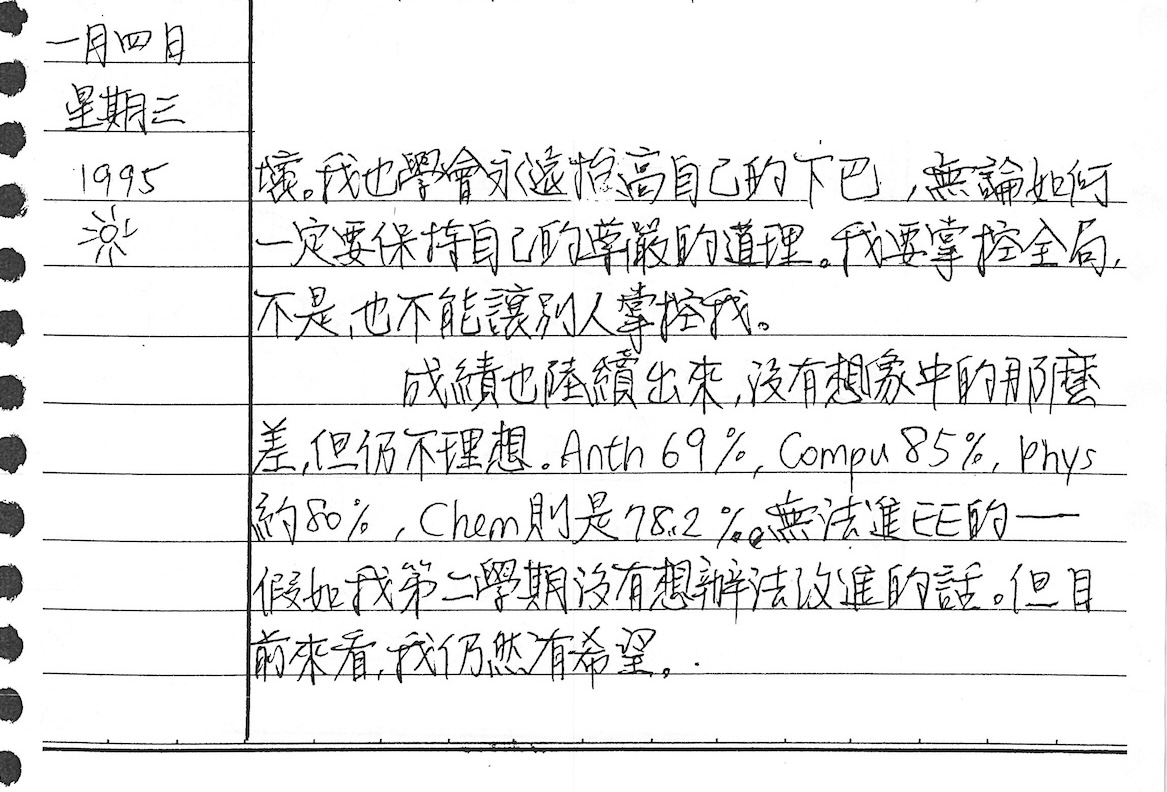 一月四日
星期三
1995
壞。我也學會永遠抬高自己的下巴,無論如何
一定要保持自己的尊嚴的道理。我要掌控全局,
不是,也不能讓別人掌控我。
成績也陸續出來,沒有想象中的那麼
差,但仍不理想。Anth 69%, Compu 85%, Phys
約80%, Chem則是78.2%。無法進EE的——
假如我第二學期沒有想辦法改進的話。但目
前來看,我仍然有希望。